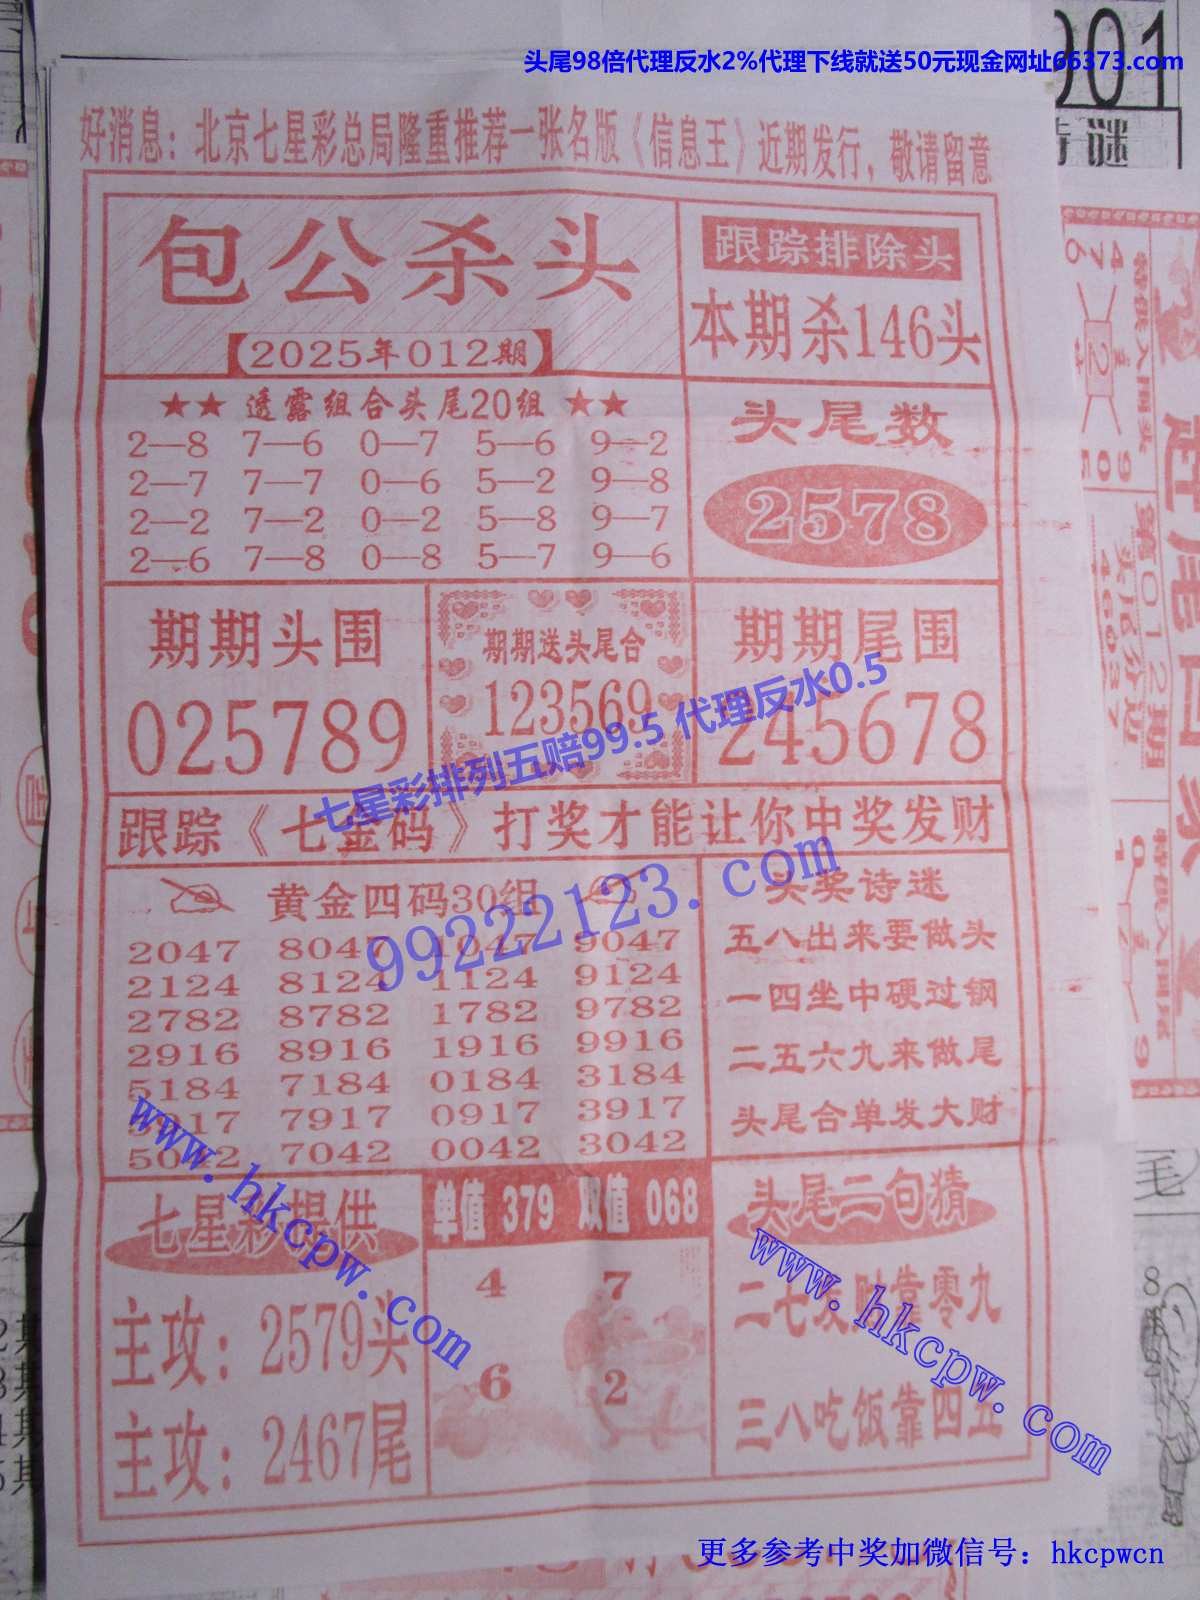 头尾98倍代理反水2%代理下线就送50元现金网址66373.com
好消息：北京七星彩总局隆重推荐一张名版《信息王》近期发行，敬请留意
包公杀头
【2025年012期】
跟踪排除头
本期杀146头
★★ 透露组合头尾20组 ★★
2—8 7—6 0—7 5—6 9—2
2—7 7—7 0—6 5—2 9—8
2—2 7—2 0—2 5—8 9—7
2—6 7—8 0—8 5—7 9—6
头尾数
2578
期期头围
025789
期期送头尾合
123569
期期尾围
245678
七星彩排列五赔99.5 代理反水0.5
跟踪《七金码》打奖才能让你中奖发财
黄金四码30组
2047 8047 1047 9047
2124 8124 1124 9124
2782 8782 1782 9782
2916 8916 1916 9916
5184 7184 0184 3184
5917 7917 0917 3917
5042 7042 0042 3042
99222123.com
头奖诗迷
五八出来要做头
一四坐中硬过钢
二五六九来做尾
头尾合单发大财
www.hkcpw.com
七星彩提供
主攻：2579头
主攻：2467尾
单值 379 双值 068
4 7
6 2
头尾二句猜
二七发财靠零九
三八吃饭靠四五
www.hkcpw.com
更多参考中奖加微信号：hkcpwcn
001
谜
第012期
4637
毛
8